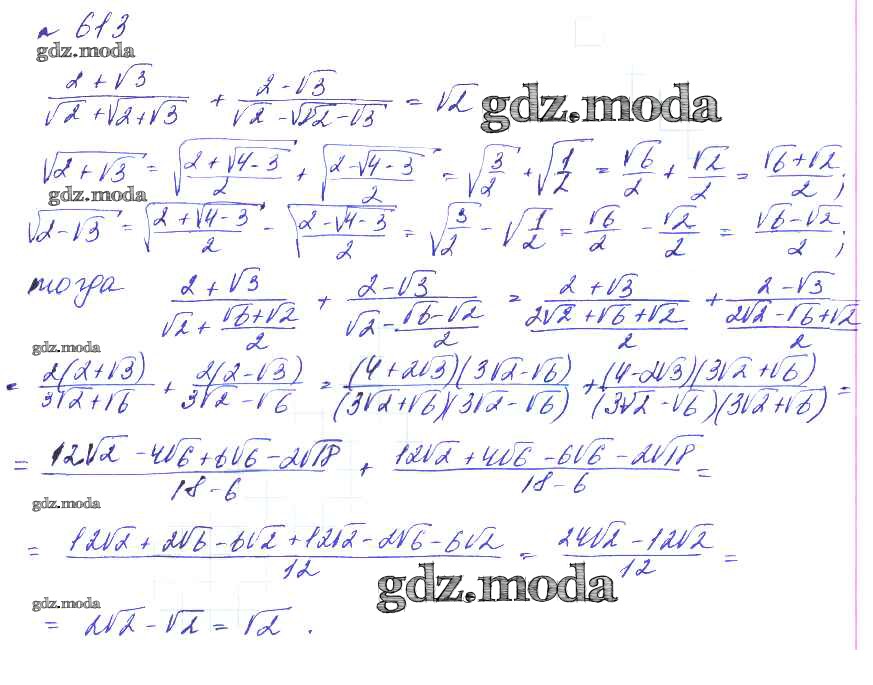 № 613
gdz.moda
(2+√3)/(√2+√(2+√3)) + (2-√3)/(√2-√(2-√3)) = √2
gdz.moda
√(2+√3) = √((2+√(4-3))/2) + √((2-√(4-3))/2) = √(3/2) + √(1/2) = √6/2 + √2/2 = (√6+√2)/2;
gdz.moda
√(2-√3) = √((2+√(4-3))/2) - √((2-√(4-3))/2) = √(3/2) - √(1/2) = √6/2 - √2/2 = (√6-√2)/2;
тогда (2+√3)/(√2+(√6+√2)/2) + (2-√3)/(√2-(√6-√2)/2) = (2+√3)/((2√2+√6+√2)/2) + (2-√3)/((2√2-√6+√2)/2)
gdz.moda
= 2(2+√3)/(3√2+√6) + 2(2-√3)/(3√2-√6) = (4+2√3)(3√2-√6)/((3√2+√6)(3√2-√6)) + (4-2√3)(3√2+√6)/((3√2-√6)(3√2+√6)) =
= (12√2-4√6+6√6-2√18)/(18-6) + (12√2+4√6-6√6-2√18)/(18-6) =
gdz.moda
= (12√2+2√6-6√2+12√2-2√6-6√2)/12 = (24√2-12√2)/12 =
gdz.moda
gdz.moda
= 2√2-√2 = √2.